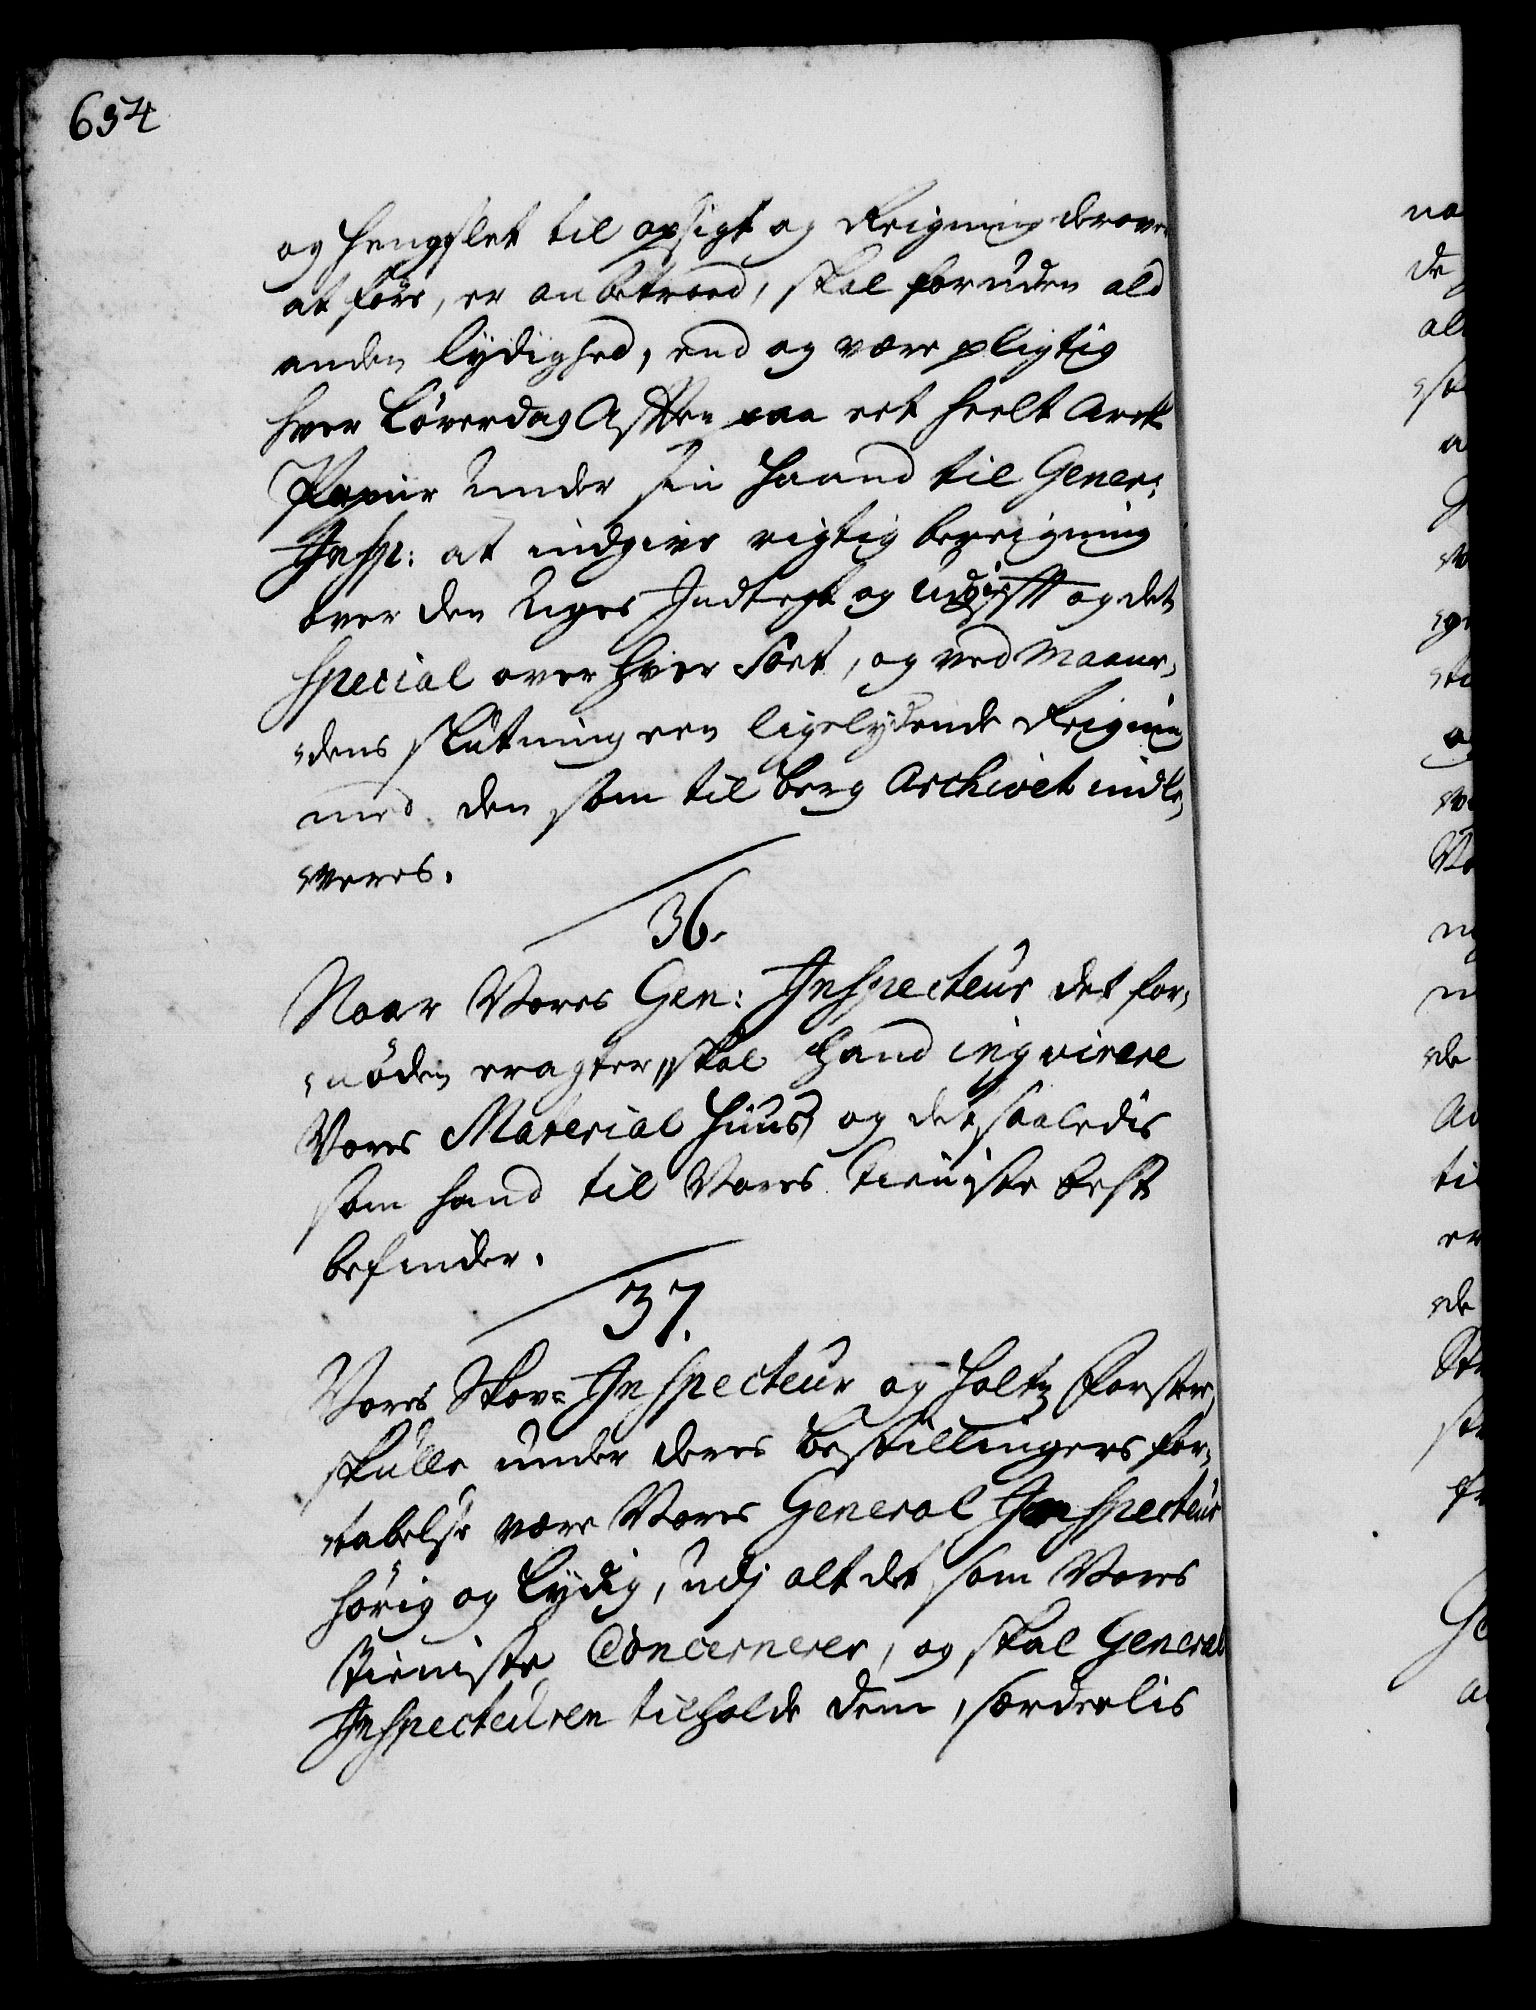 634
og Hengslet til opsigt og Reigning derover
at före, er anbetroed, skal foruden ald
anden lydighed, end og være pligtig
hver Löverdag Afften paa eet heelt Arck
Papiir under sin Haand til Gener:
Insp: at indgive rigtig bereigning
over den Uges Indtegt og Udgifft og det
special over hver Sort, og ved Maane-
dens slutning een ligelydende Reigning
med den som til berg Archivet indle-
veres.
36.
Naar Vores Gen: Inspecteur det for-
nöden eragter, skal hand inqvirere
Vores Material Huus, og det saaledis
som hand til Vores tieniste best
befinder.
37.
Vores Skov-Inspecteur og Holtz Forstere,
skulle under deres bestillingers for-
tabelse være Vores General Inspecteur
hörig og lydig, udj alt det som Vores
tieniste Concernerer, og skal General
Inspecteuren tilholde dem, særdeelis